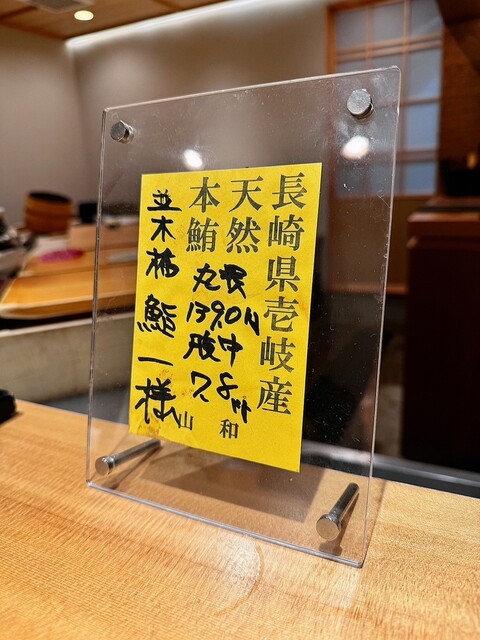 長崎県壱岐産
天然
本鮪
丸
139.0K
腹中
7.8K
山和
並木橋 鮨一様